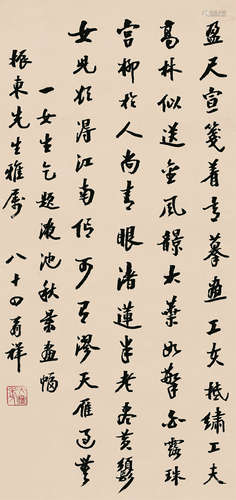 盈尺宣箋着意摹畫工女抵繡工夫
高林似送金風韻大葉如擎露珠
宮柳於人尚青眼渚蓮半老黃鬚
女兒欲得江南信可有漻天雁過無
一女生乞題液池秋景畫幅
振東先生雅屬 八十四翁祥